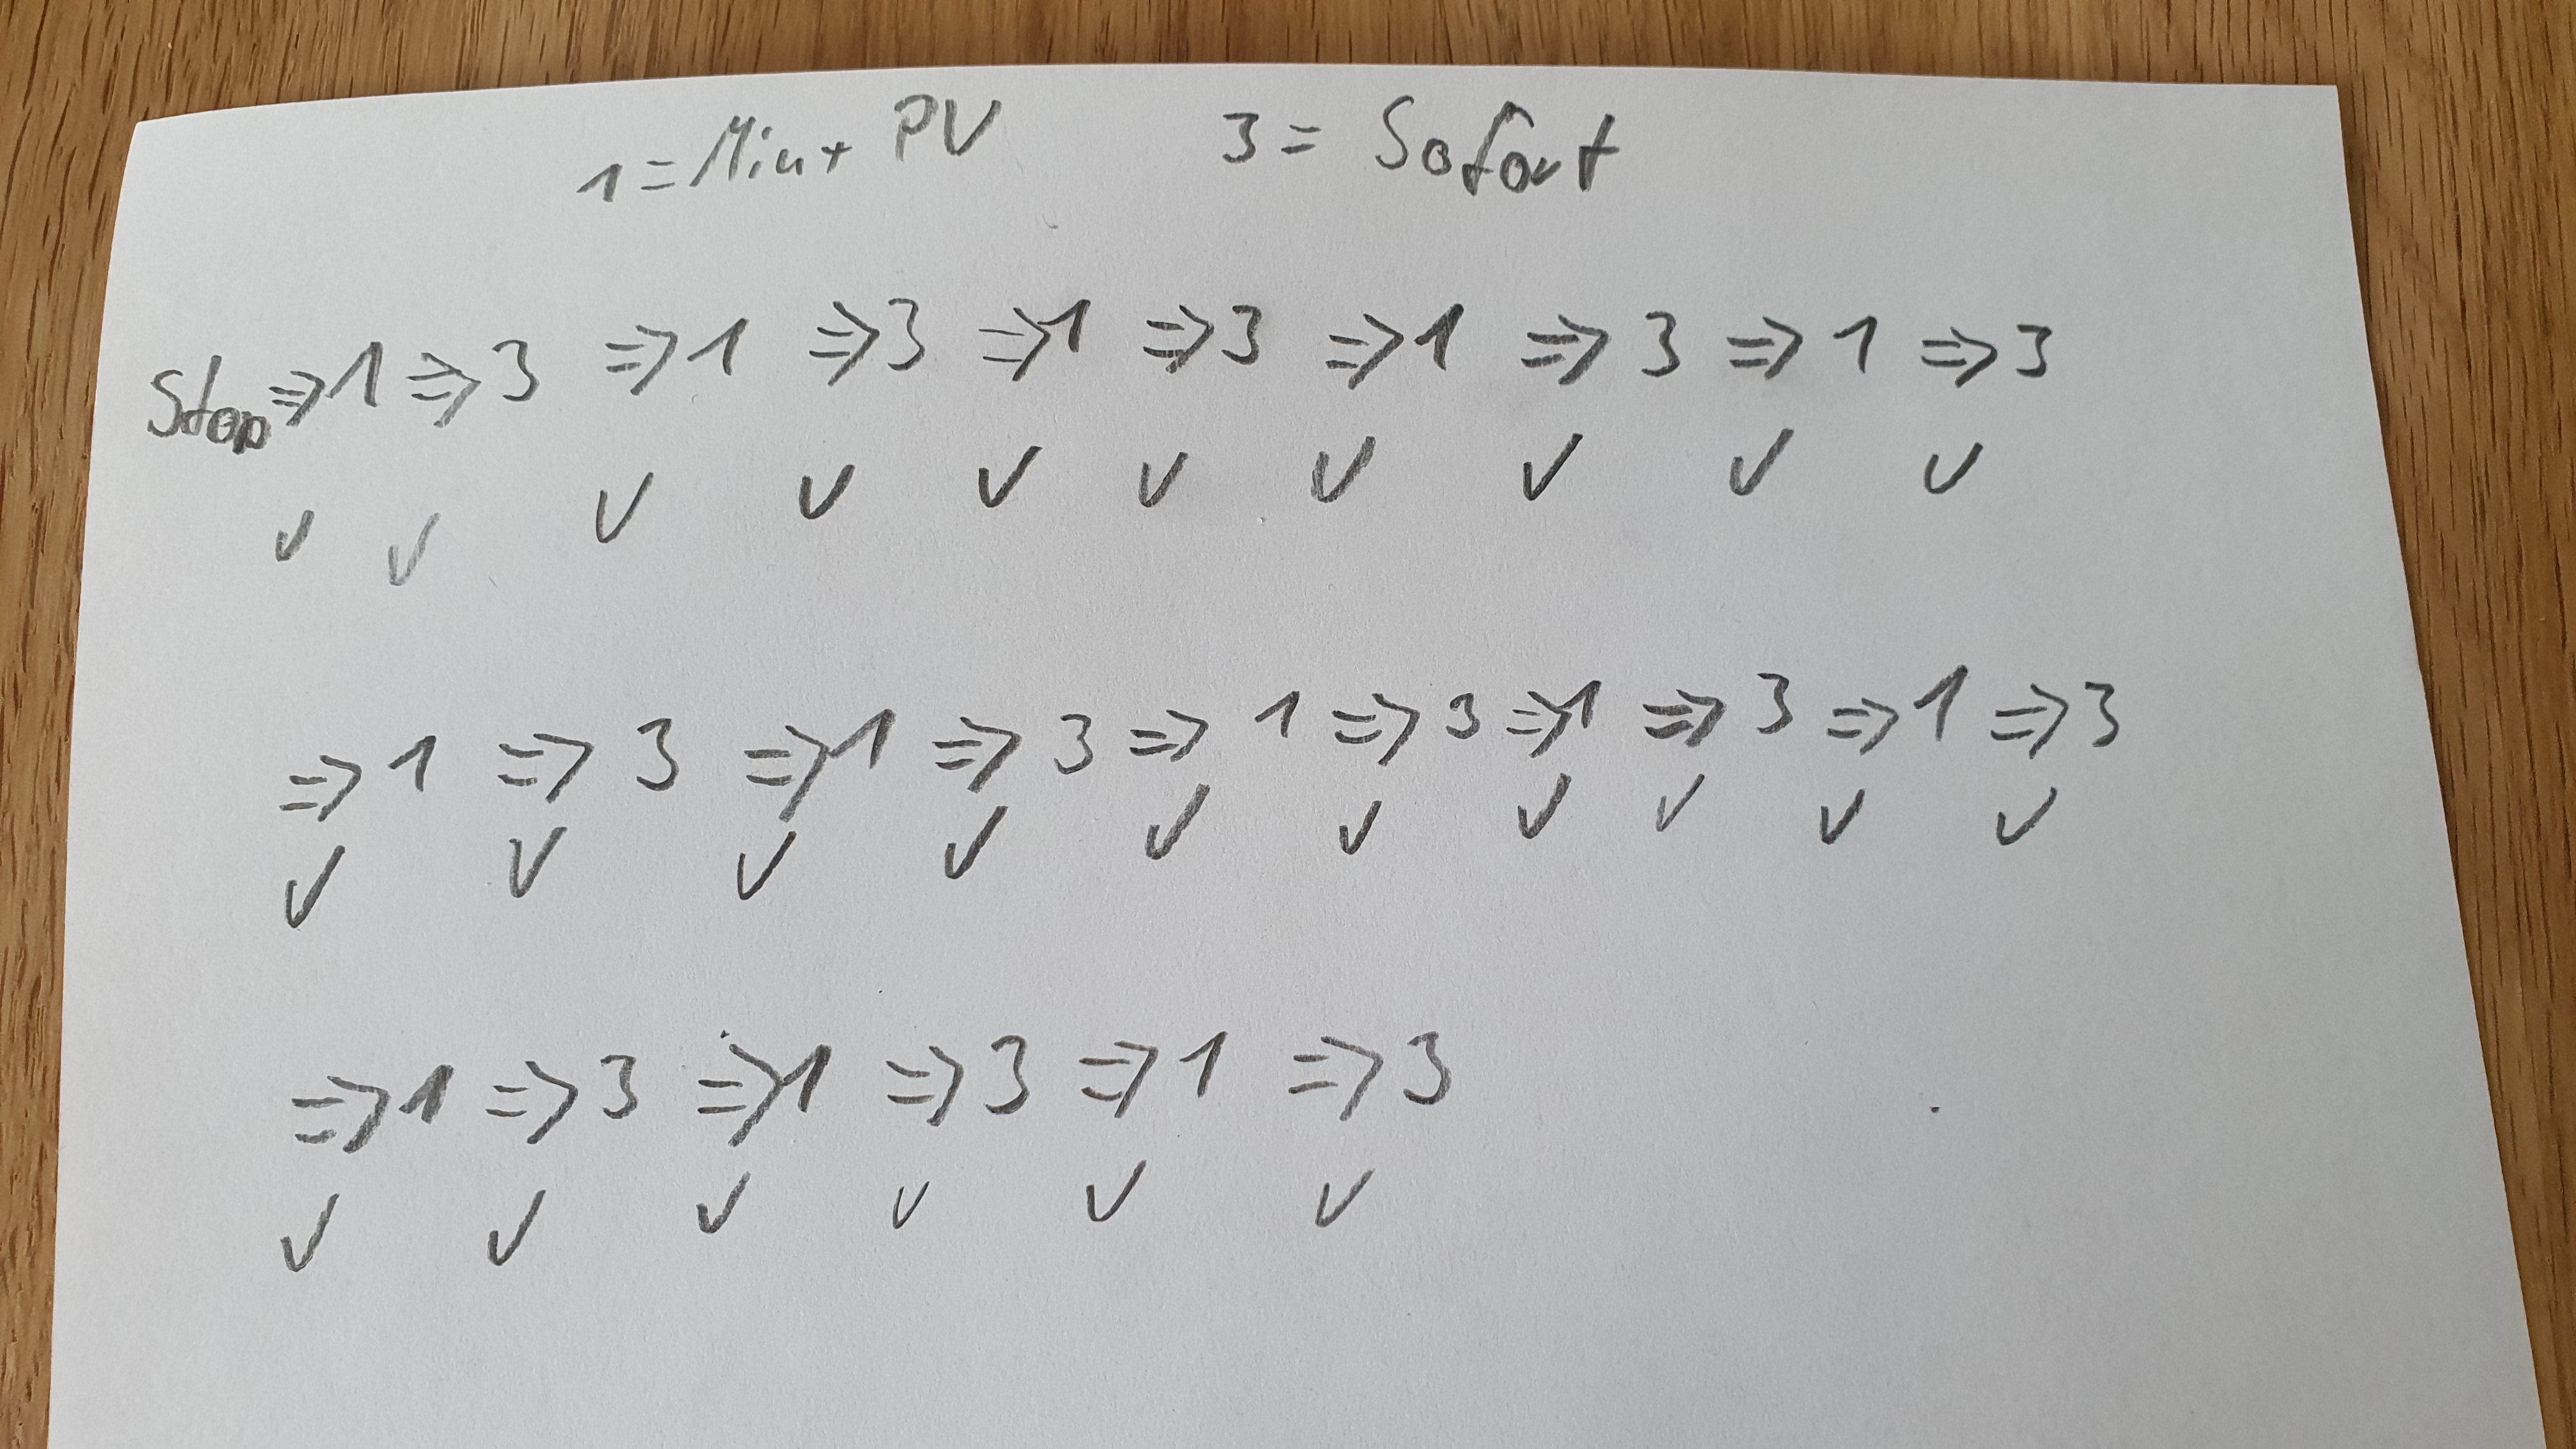 1 = Min + PV 3 = Sofort
Stop ⇒ 1 ⇒ 3 ⇒ 1 ⇒ 3 ⇒ 1 ⇒ 3 ⇒ 1 ⇒ 3 ⇒ 1 ⇒ 3
✓ ✓ ✓ ✓ ✓ ✓ ✓ ✓ ✓ ✓
⇒ 1 ⇒ 3 ⇒ 1 ⇒ 3 ⇒ 1 ⇒ 3 ⇒ 1 ⇒ 3 ⇒ 1 ⇒ 3
✓ ✓ ✓ ✓ ✓ ✓ ✓ ✓ ✓ ✓
⇒ 1 ⇒ 3 ⇒ 1 ⇒ 3 ⇒ 1 ⇒ 3
✓ ✓ ✓ ✓ ✓ ✓